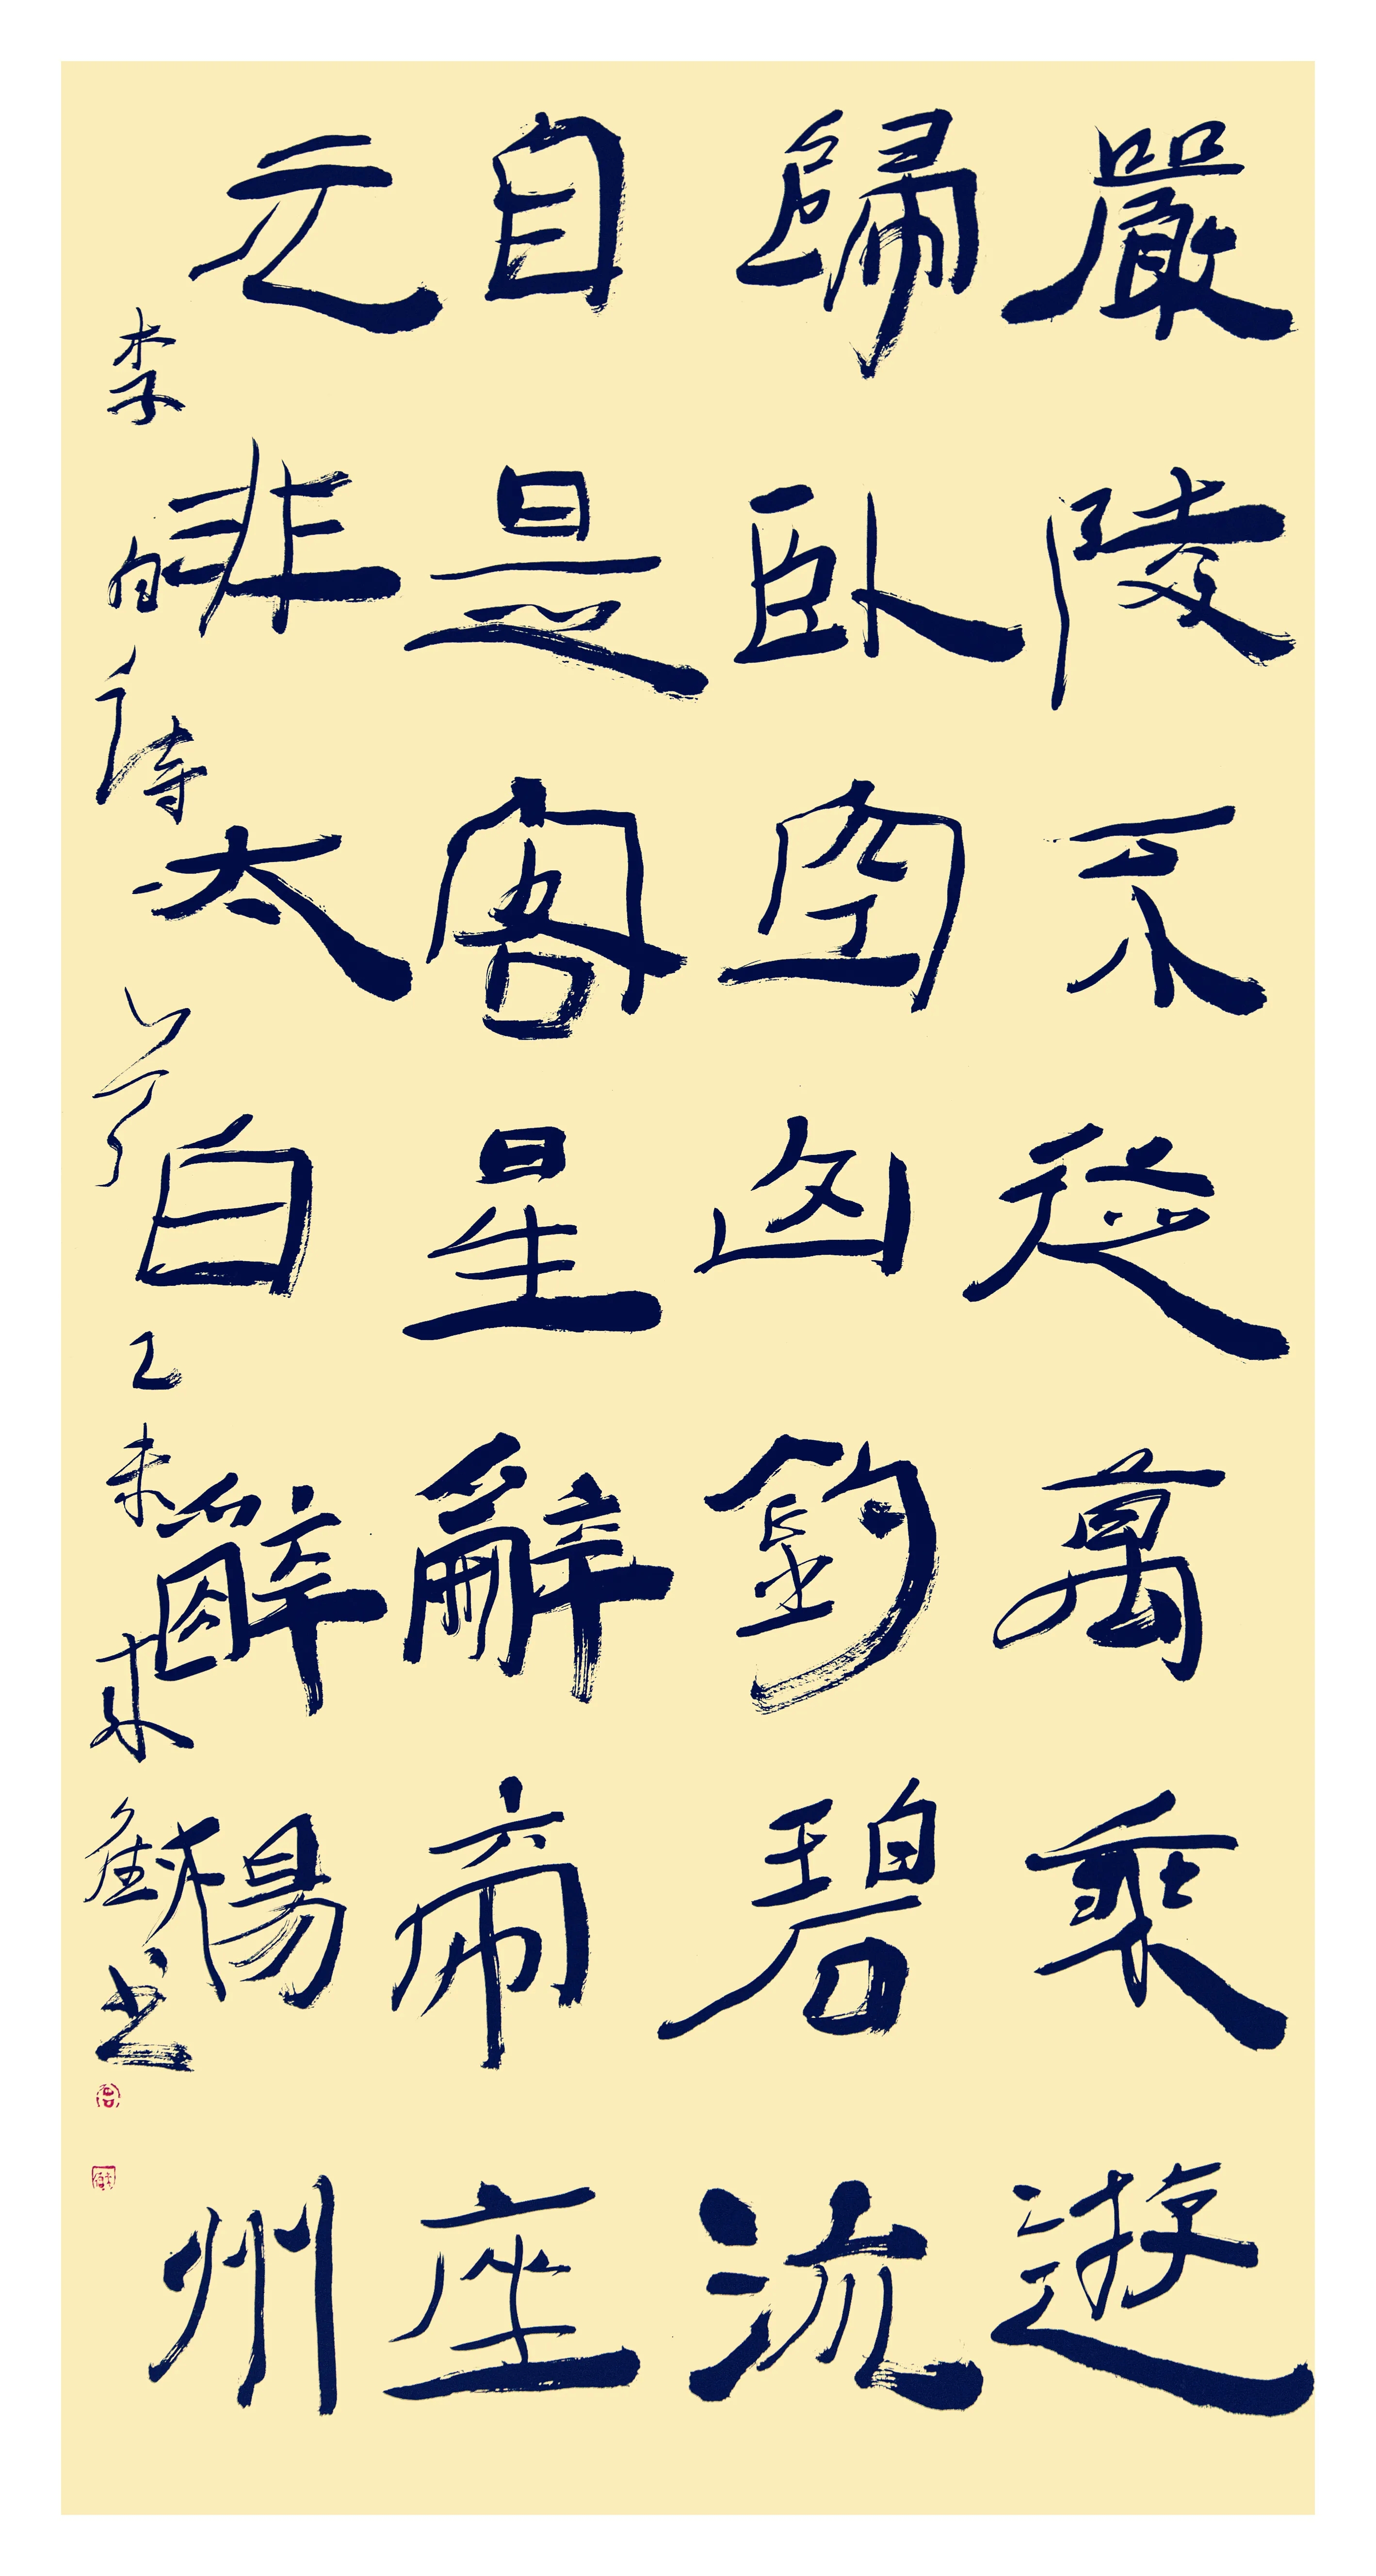 嚴陵不從萬乘遊
歸臥空山釣碧流
自是客星辭帝座
元非太白醉揚州
李白詩 乙未 書